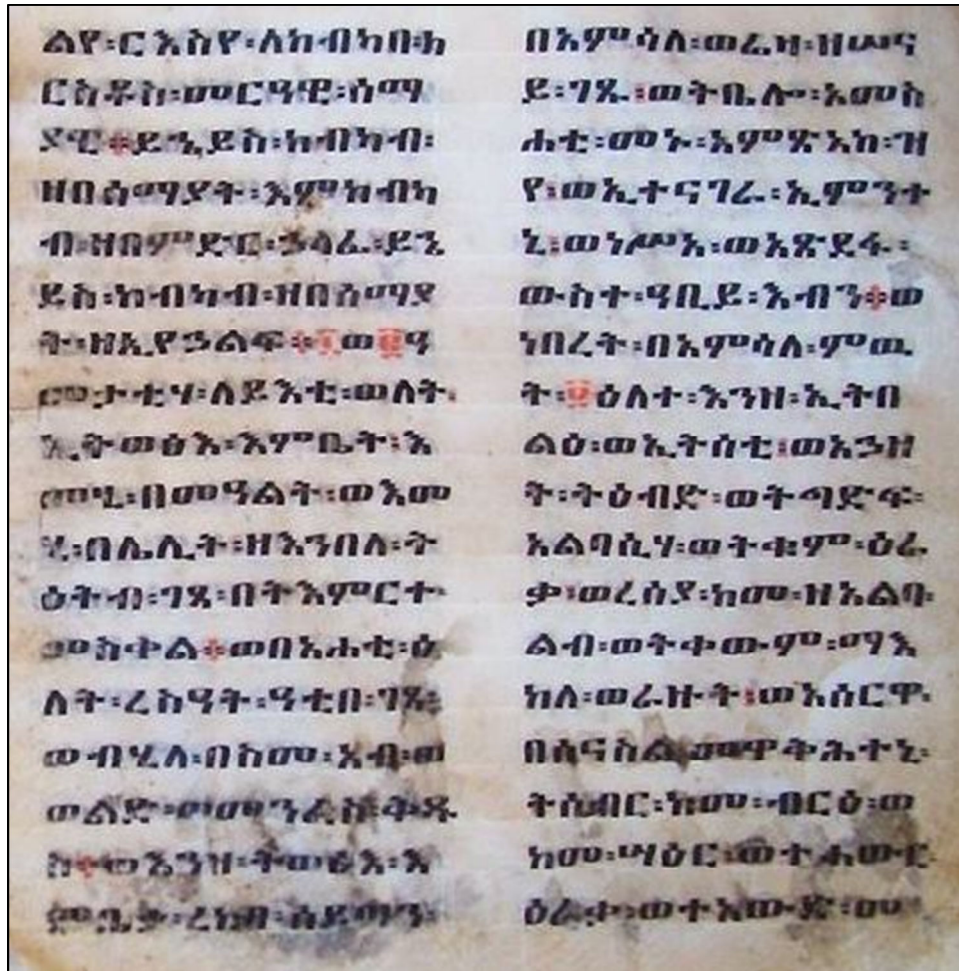 ልየ፡ርእስየ፡ለከብካበ፡ክ
ርስቶስ፡መርዓዊ፡ሰማ
ያዊ፨ይኄይስ፡ከብካብ፡
ዘበሰማያት፡እምከብካ
ብ፡ዘበምድር፡ኃላፊ፡ይኄ
ይስ፡ከብካብ፡ዘበሰማያ
ት፡ዘኢየኃልፍ፨፲ወ፪ዓ
መታቲሃ፡ለይእቲ፡ወለት፡
ኢትወፅእ፡እምቤት፡እ
መኒ፡በመዓልት፡ወእመ
ሂ፡በሌሊት፡ዘእንበለ፡ት
ዕትብ፡ገጻ፡በትእምርተ፡
መስቀል፨ወበአሐቲ፡ዕ
ለት፡ረስዓት፡ዓቲበ፡ገጻ፡
ወብሂለ፡በስመ፡አብ፡ወ
ወልድ፡ወመንፈስ፡ቅዱ
ስ፨ወእንዘ፡ትወፅእ፡እ
ምቤታ፡ረከባ፡ሰይጣን፡
በአምሳለ፡ወሬዛ፡ዘሠና
ይ፡ገጹ፡ወትቤሎ፡አመስ
ሐቲ፡መኑ፡አምጽአከ፡ዝ
የ፡ወኢተናገራ፡ኢምንተ
ኒ፡ወነሥአ፡ወአጽደፋ፡
ውስተ፡ዓቢይ፡እብን፨ወ
ነበረት፡በአምሳለ፡ምዉ
ት፡፱ዕለተ፡እንዘ፡ኢትበ
ልዕ፡ወኢትሰቲ፡ወአኃዘ
ት፡ትዕብድ፡ወትጣድፍ፡
አልባሲሃ፡ወትቀዩም፡ዕራ
ቃ፡ወረሰያ፡ከመ፡ዘአልባ፡
ልብ፡ወትቀውም፡ማእ
ከለ፡ወራዙት፡ወአሰርዋ፡
በሰናስል፡ወመዋቅሕተኒ፡
ትሰብር፡ከመ፡ብርዕ፡ወ
ከመ፡ሣዕር፡ወተሐውር፡
ዕራቃ፡ወተአውድ፡መ